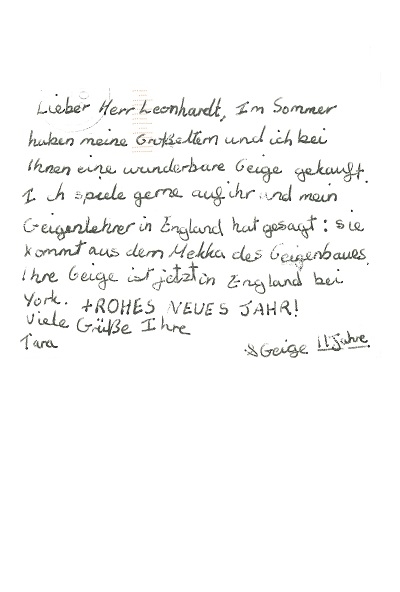 Lieber Herr Leonhardt, Im Sommer
haben meine Großeltern und ich bei
Ihnen eine wunderbare Geige gekauft.
Ich spiele gerne auf ihr und mein
Geigenlehrer in England hat gesagt: sie
kommt aus dem Mekka des Geigenbaues.
Ihre Geige ist jetzt in England bei
York. FROHES NEUES JAHR!
Viele Grüße Ihre
Tara
&Geige 11 Jahre.